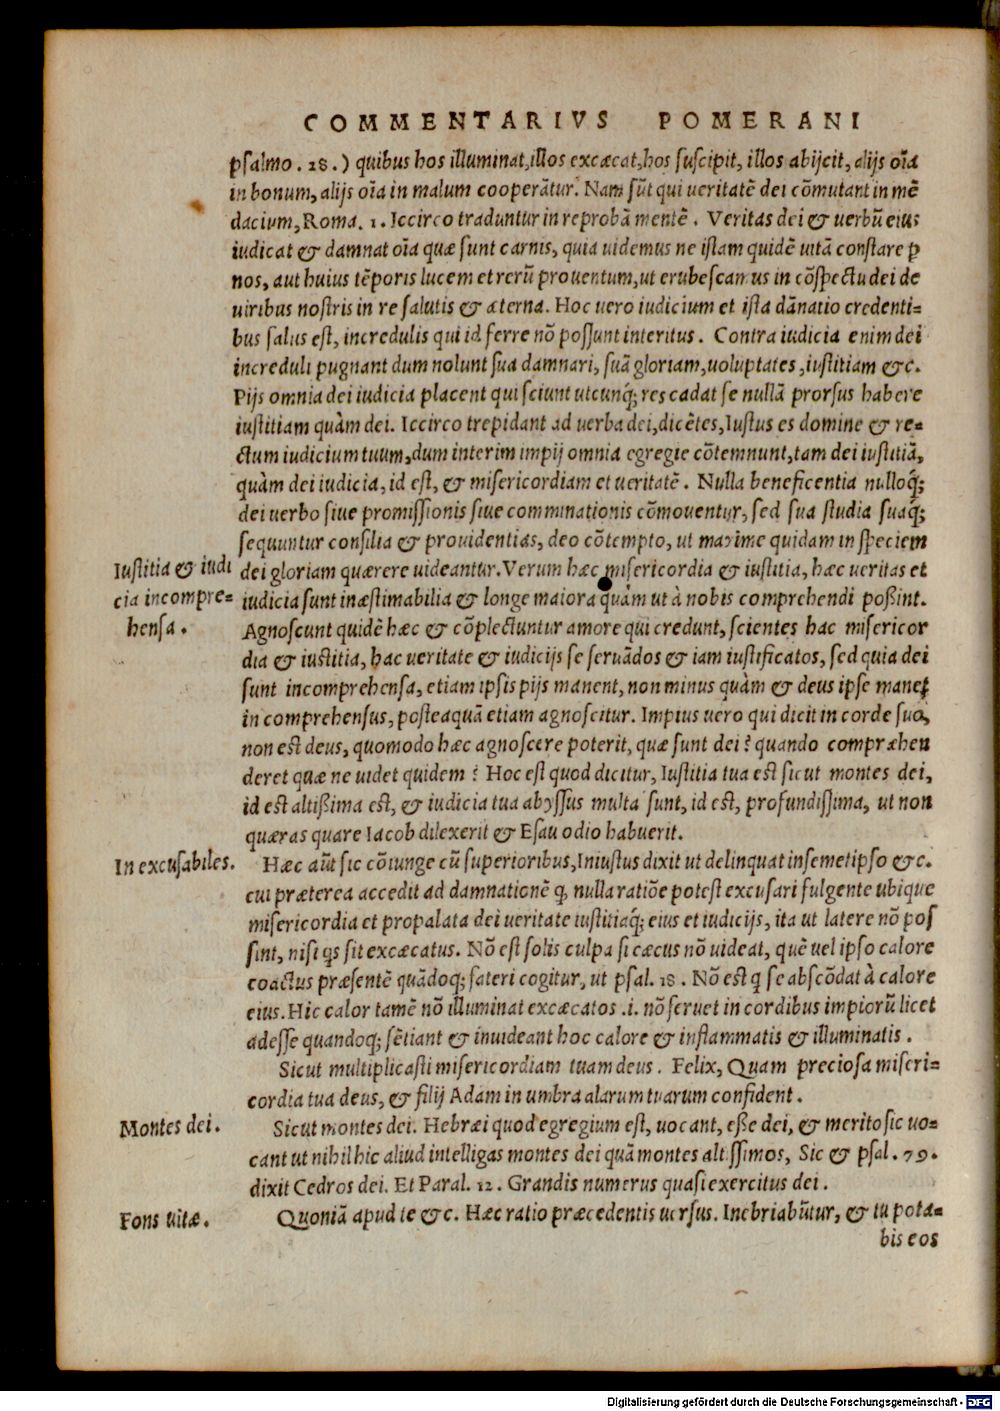 COMMENTARIVS POMERANI
psalmo. 18.) quibus hos illuminat, illos excæcat, hos suscipit, illos abijcit, alijs oīa
in bonum, alijs oīa in malum cooperātur. Nam sūt qui ueritatē dei cōmutant in mē
dacium, Roma. 1. Iccirco traduntur in reprobā mentē. Veritas dei & uerbū eius
iudicat & damnat oīa quæ sunt carnis, quia uidemus ne istam quidē uitā constare ꝑ
nos, aut huius tēporis lucem et rerū prouentum, ut erubescamus in cōspectu dei de
uiribus nostris in re salutis & æterna. Hoc uero iudicium et ista dānatio credenti=
bus salus est, incredulis qui id ferre nō possunt interitus. Contra iudicia enim dei
increduli pugnant dum nolunt sua damnari, suā gloriam, uoluptates, iustitiam &c.
Pijs omnia dei iudicia placent qui sciunt utcunq́; res cadat se nullā prorsus habere
iustitiam quàm dei. Iccirco trepidant ad uerba dei, dicētes, Iustus es domine & re=
ctum iudicium tuum, dum interim impij omnia egregie cōtemnunt, tam dei iustitiā,
quàm dei iudicia, id est, & misericordiam et ueritatē. Nulla beneficentia nulloq́;
dei uerbo siue promissionis siue comminationis cōmouentur, sed sua studia suaq́;
sequuntur consilia & prouidentias, deo cōtempto, ut maxime quidam in speciem
Iustitia & iudi
cia incompre=
hensa.
dei gloriam quærere uideantur. Verum hæc misericordia & iustitia, hæc ueritas et
iudicia sunt inæstimabilia & longe maiora quàm ut à nobis comprehendi poßint.
Agnoscunt quidē hæc & cōplectuntur amore qui credunt, scientes hac misericor
dia & iustitia, hac ueritate & iudicijs se seruādos & iam iustificatos, sed quia dei
sunt incomprehensa, etiam ipsis pijs manent, non minus quàm & deus ipse manet
incomprehensus, posteaquā etiam agnoscitur. Impius uero qui dicit in corde suo,
non est deus, quomodo hæc agnoscere poterit, quæ sunt dei? quando compræhen
deret quæ ne uidet quidem? Hoc est quod dicitur, Iustitia tua est sicut montes dei,
id est altißima est, & iudicia tua abyssus multa sunt, id est, profundissima, ut non
quæras quare Iacob dilexerit & Esau odio habuerit.
In excusabiles.
Hæc aūt sic cōiunge cū superioribus, Iniustus dixit ut delinquat in semetipso &c.
cui præterea accedit ad damnationē ꝙ nulla ratiōe potest excusari fulgente ubique
misericordia et propalata dei ueritate iustitiaq́; eius et iudicijs, ita ut latere nō pos
sint, nisi q̄s sit excæcatus. Nō est solis culpa si cæcus nō uideat, quē uel ipso calore
coactus præsentē quādoq; fateri cogitur, ut psal. 18. Nō est q̄ se abscōdat à calore
eius. Hic calor tamē nō illuminat excæcatos .i. nō seruet in cordibus impiorū licet
adesse quandoq; sētiant & inuideant hoc calore & inflammatis & illuminatis.
Sicut multiplicasti misericordiam tuam deus. Felix, Quam preciosa miseri=
cordia tua deus, & filij Adam in umbra alarum tuarum confident.
Montes dei.
Sicut montes dei. Hebræi quod egregium est, uocant, eße dei, & merito sic uo=
cant ut nihil hic aliud intelligas montes dei quā montes altissimos, Sic & psal. 79.
dixit Cedros dei. Et Paral. 12. Grandis numerus quasi exercitus dei.
Fons uitæ.
Quoniā apud te &c. Hæc ratio præcedentis uersus. Inebriabūtur, & tu pota=
bis eos
Digitalisierung gefördert durch die Deutsche Forschungsgemeinschaft - DFG